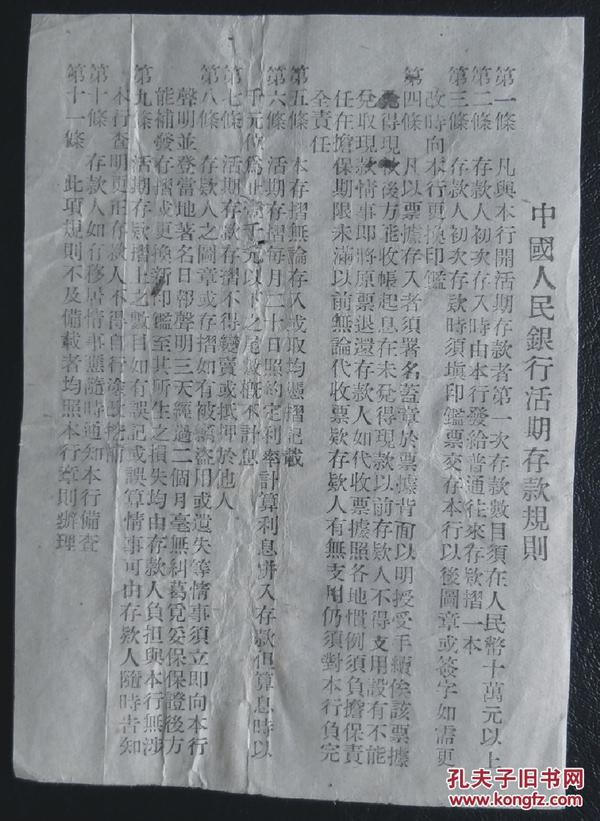 中國人民銀行活期存款規則
第一條　凡與本行開活期存款者第一次存款數目須在人民幣十萬元以上
第二條　存款人初次存入時由本行發給普通往來存款摺一本
第三條　存款人初次存款時須塡印鑑票交存本行以後圖章或簽字如需更
改時向本行更換印鑑
第四條　凡以票據存入者須署名蓋章於票據背面以明授受手續俟該票據
兌得現款後方能收帳起息在未兌得現款以前存款人不得支用設有不能
兌取現款情事即將原票退還存款人如代收票據照各地慣例須負擔保責
任在擔保期限未滿以前無論代收票款存款人有無支用仍須對本行負完
全責任
第五條　本存摺無論存入或取均憑摺記載
第六條　活期存摺每月二十日照約定利率計算利息併入存款但算息時以
千元位爲止壹千元以下之尾數槪不計息
第七條　活期存款存摺不得變賣或抵押於他人
第八條　存款人之圖章或存摺如有被竊盜用或遺失等情事須立即向本行
聲明並登當地著名日報聲明三天經過二個月毫無糾葛覓妥保保證後方
能補發存摺或更換新印鑑至其所生之損失均由存款人負担與本行無涉
第九條　活期存款摺上之數目如有誤記或誤算情事可由存款人隨時吿知
本行查明更正存款人不得自行塗改
第十條　存款人如有移居情事應隨時通知本行備查
第十一條　此項規則不及備載者均照本行章則辦理
孔夫子旧书网
www.kongfz.com